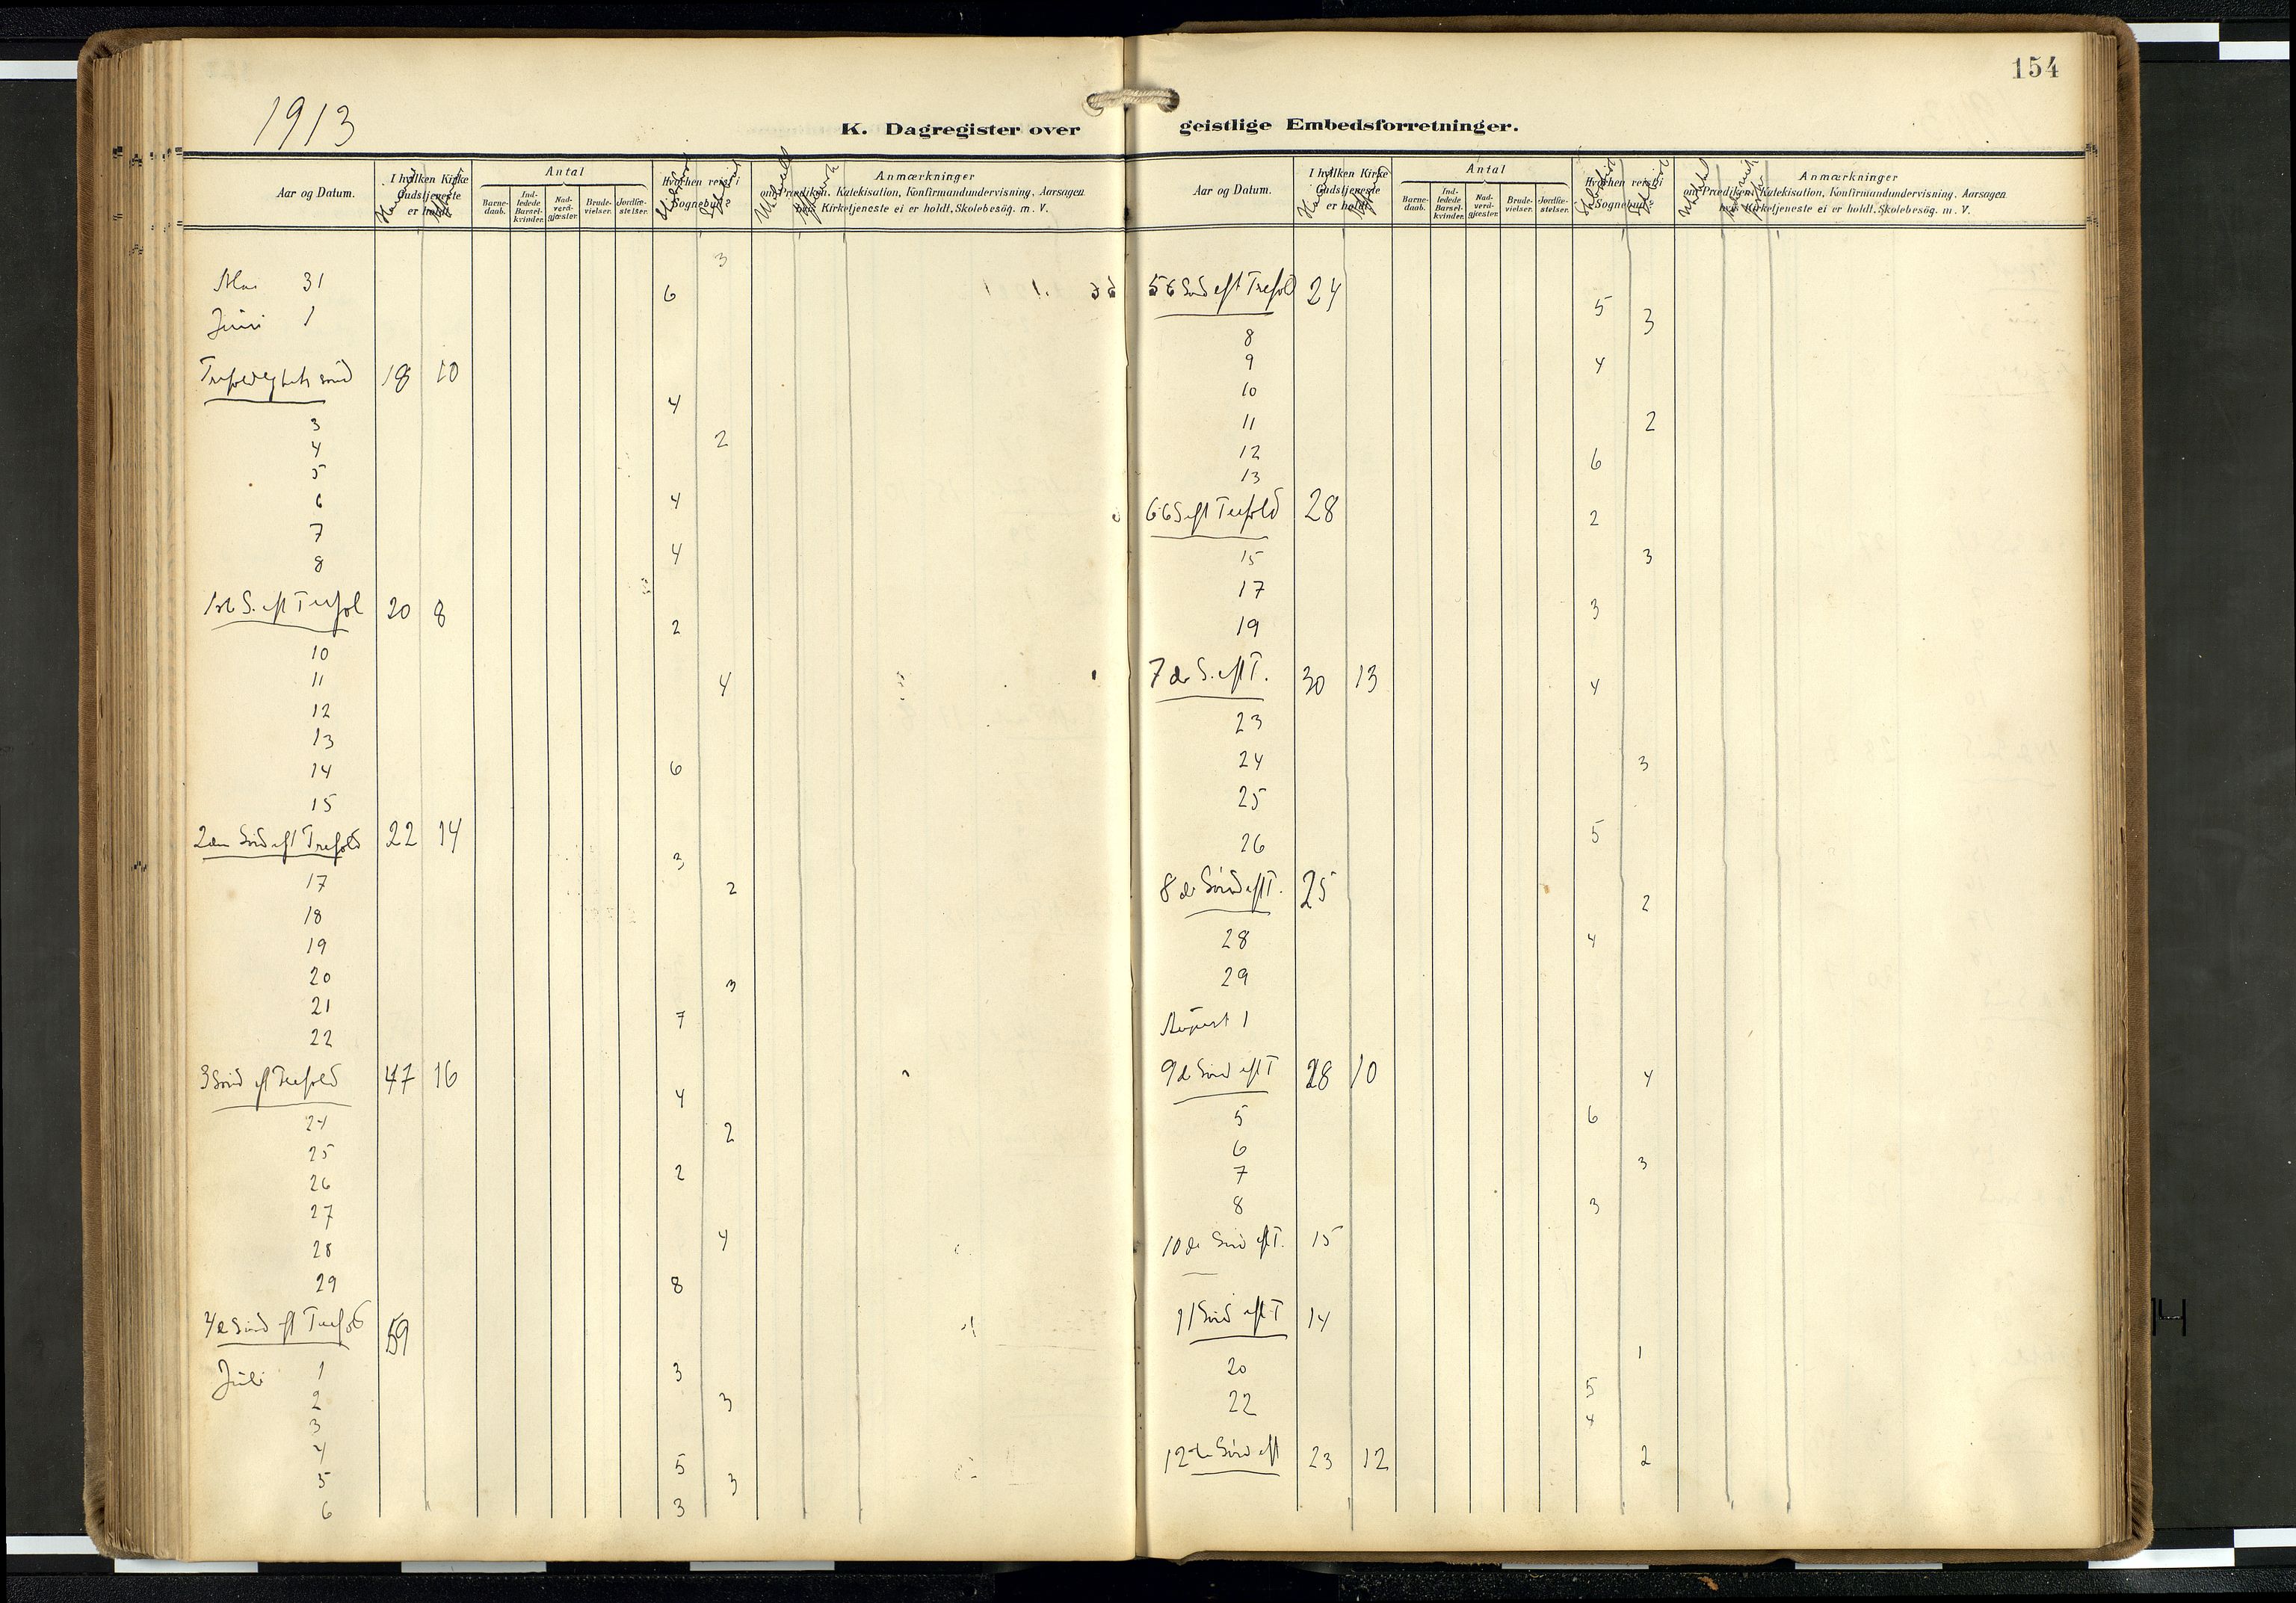 154
1913
K. Dagregister over geistlige Embedsforretninger.
Aar og Datum. I hvilken Kirke Gudstjeneste er holdt. Antal Barne-daab. Ind-ledede Barsel-kvinder. Nad-verd-gjæster. Brude-vielser. Jordfæ-stelser. Hvorhen reist i Sognebud? Anmærkninger om Prædiken, Katekisation, Konfirmandundervisning. Aarsagen hvis Kirketjeneste ei er holdt. Skolebesög. m. V.
3
Mai 31 6
Juni 1
Trefoldighets sönd 18 10
4
3
4 2
5
6 4
7
8 4
1ste S. eft Trefol 20 8
2
10
11 4
12
13
14 6
15
2den Sönd eft Trefold 22 14
3
17 2
18
19
20 3
21 7
22
3 Sönd eft Trefold 47 16
4
24 2
25
26 2
27
28 4
29 8
4de Sönd eft Trefold 59
Juli 1 3
2 3
3
4
5 5 3
6 3
Aar og Datum. I hvilken Kirke Gudstjeneste er holdt. Antal Barne-daab. Ind-ledede Barsel-kvinder. Nad-verd-gjæster. Brude-vielser. Jordfæ-stelser. Hvorhen reist i Sognebud? Anmærkninger om Prædiken, Katekisation, Konfirmandundervisning. Aarsagen hvis Kirketjeneste ei er holdt. Skolebesög. m. V.
5 Sönd eft Trefold 24
5 3
8
9 4
10
11 2
12 6
13
6 S eft Trefold 28 2
15 3
17
19 3
7de S. eft T. 30 13 4
23
24 3
25
26 5
8de Sönd eft T. 25 2
28 4
29
August 1
9de Sönd eft T 28 10 4
5 6
6
7 3
8 3
10de Sönd eft T. 15
11 Sönd eft T 14
1
20 5
22 4
12te Sönd eft 23 12 2